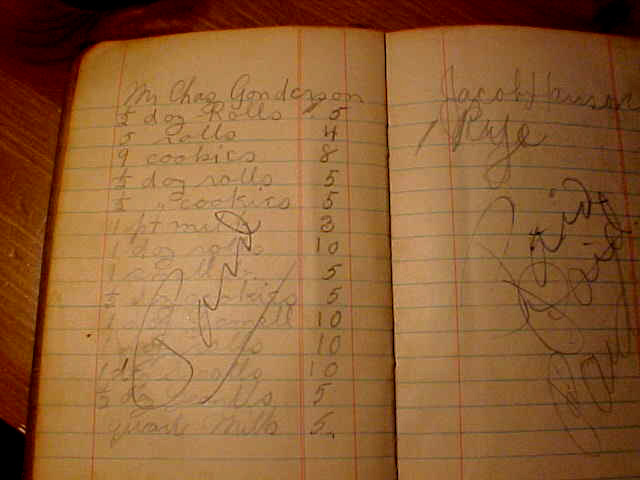 Mr Chas Gonderson
1/2 doz Rolls 5
5 rolls 4
9 cookies 8
1/2 doz rolls 5
1/2 " cookies 5
1 pt milk 3
1 doz rolls 10
1 5
1/2 doz cookies 5
1 10
1 doz rolls 10
1 doz rolls 10
1/2 doz rolls 5
quart milk 5
Paid
Jacob Hanson
1 Rye
Paid
Paid
Paid